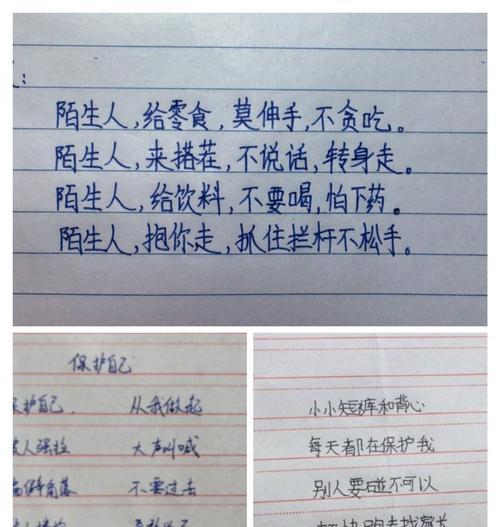 ：
陌生人，给零食，莫伸手，不贪吃。
陌生人，来搭茬，不说话，转身走。
陌生人，给饮料，不要喝，怕下药。
陌生人，抱你走，抓住拦杆不松手。
保护自己
护自己， 从我做起
人强拉 大声叫喊
僻角落 不要过去
小小短裤和背心
每天都在保护我
别人要碰不可以
快跑去找家长